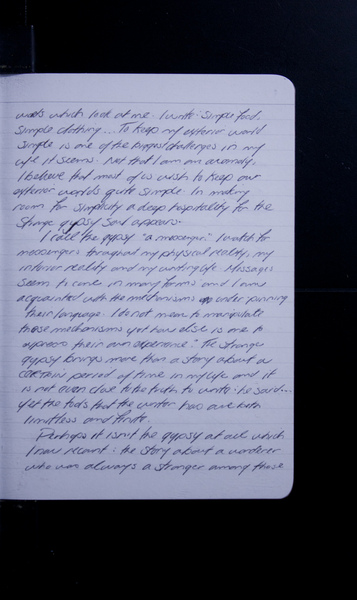 words which look at me. I write: simple food,
simple clothing... To keep my exterior world
simple is one of the biggest challenges in my
life it seems. Not that I am an anomaly,
I believe that most of us wish to keep our
exterior worlds quite simple. In making
room for simplicity a deep hospitality for the
strange gypsy soul appears.
I call the gypsy "a messenger." I watch for
messengers throughout my physical reality, my
interior reality and my writing life. Messages
seem to come in many forms and I am
acquainted with the mechanisms under pinning
their language. I do not mean to manipulate
those mechanisms yet how else is one to
express their own experience? The strange
gypsy brings more than a story about a
certain period of time in my life and it
is not even close to the truth to write: he said...
yet the tools that the writer has are both
limitless and finite.
Perhaps it isn't the gypsy at all which
I now recant: the story about a wanderer
who was always a stranger among those